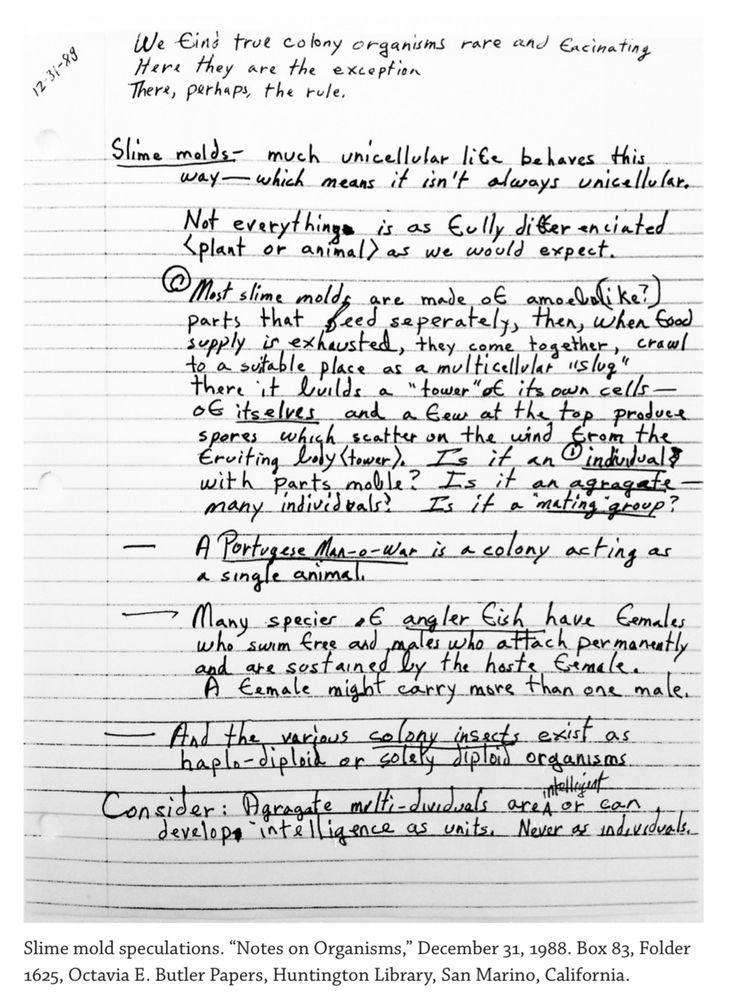 12-31-88
We find true colony organisms rare and facinating
Here they are the exception
There, perhaps, the rule.
Slime molds- much unicellular life behaves this
way—which means it isn't always unicellular.
Not everything is as fully differenciated
<plant or animal> as we would expect.
@ Most slime molds are made of amoeba(like?)
parts that feed seperately, then, when food
supply is exhausted, they come together, crawl
to a suitable place as a multicellular "slug"
there it builds a "tower" of its own cells—
of itselves and a few at the top produce
spores which scatter on the wind from the
fruiting body <tower>. Is it an ① individual?
with parts moble? Is it an agragate—
many individuals? Is it a "mating" group?
— A Portugese Man-o-War is a colony acting as
a single animal.
— Many species of angler fish have females
who swim free and males who attach permanently
and are sustained by the hoste female.
A female might carry more than one male.
— And the various colony insects exist as
haplo-diploid or solely diploid organisms
intelligent
Consider: Agragate multi-dividuals are ^ or can
develop intelligence as units. Never as individuals.
Slime mold speculations. “Notes on Organisms,” December 31, 1988. Box 83, Folder
1625, Octavia E. Butler Papers, Huntington Library, San Marino, California.